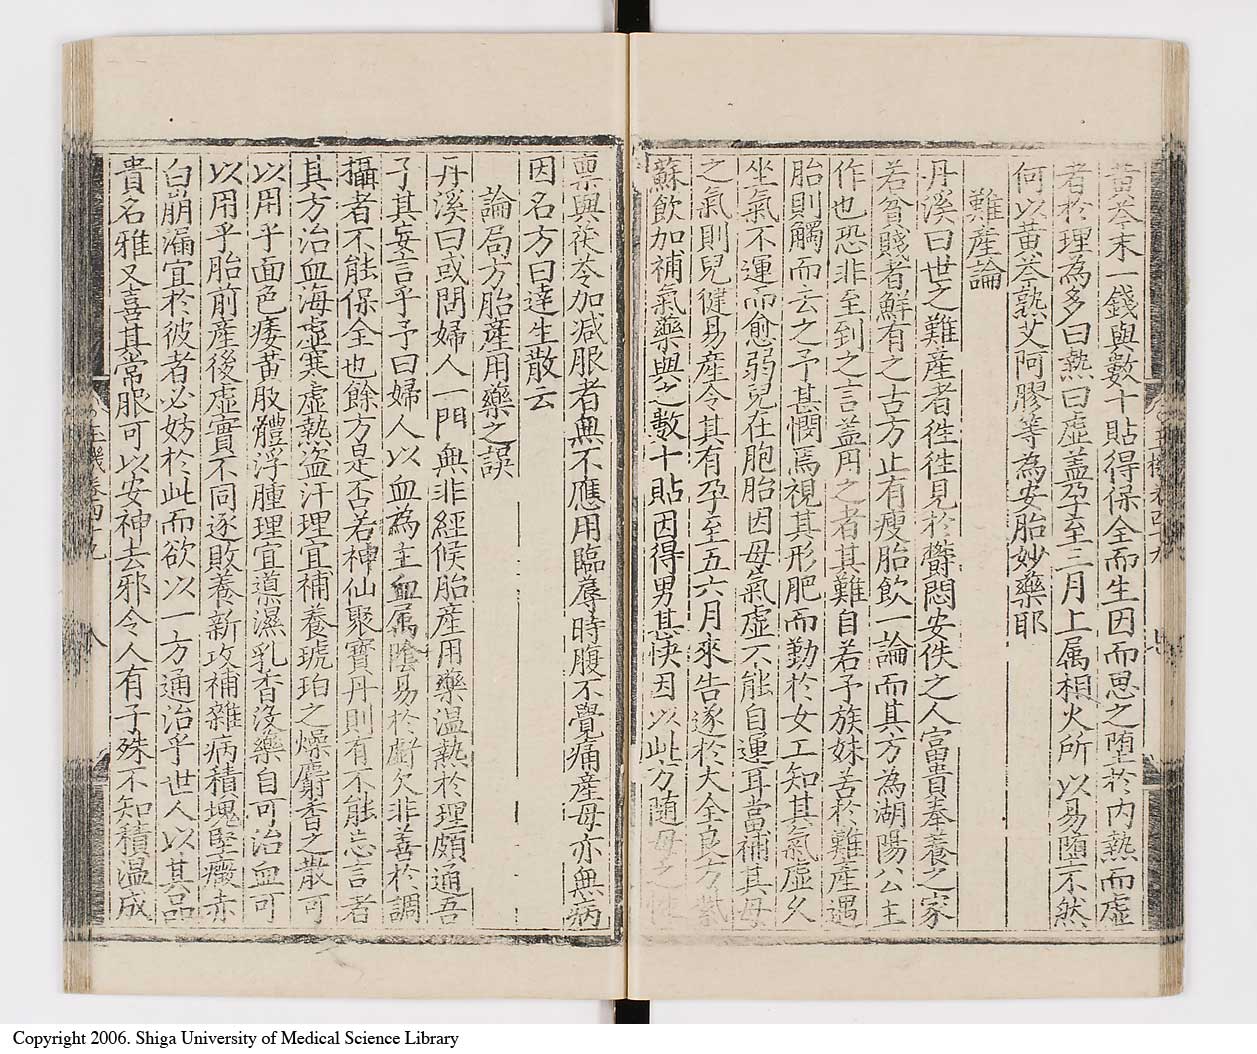 黃芩末一錢與數十貼得保全而生因而思之堕於內熱而虛
者於理為多曰熱曰虛蓋孕至三月上属相火所以易堕不然
何以黃芩熟艾阿膠等為安胎妙藥耶
難產論
丹溪曰世之難產者徃徃見於欝悶安佚之人富貴奉養之家
若貧賤者鮮有之古方止有瘦胎飲一論而其方為湖陽公主
作也恐非至到之言盖用之者其難自若予族妹苦於難產遇
胎則觸而去之予甚憫焉視其形肥而勤於女工知其氣虛久
坐氣不運而愈弱兒在胞胎因母氣虛不能自運耳當補其母
之氣則兒健易產今其有孕至五六月來告遂於大全良方紫
蘇飲加補氣藥與之數十貼因得男甚快因以此方随母之性
稟與茯苓加减服者無不應用臨蓐時腹不覺痛產母亦無病
因名方曰達生散云
論局方胎產用藥之誤
丹溪曰或問婦人一門無非經候胎產用藥温熱於理頗通吾
子其妄言乎予曰婦人以血為主血属隂易於虧欠非善於調
攝者不能保全也餘方是否若神仙聚寳丹則有不能忘言者
其方治血海虛寒虛熱盗汗理宜補養琥珀之燥麝香之散可
以用乎面色痿黃肢體浮腫理宜導濕乳香没藥自可治血可
以用乎胎前產後虛實不同逐敗養新攻補雜病積塊堅癥赤
白崩漏宜於彼者必妨於此而欲以一方通治乎世人以其品
貴名雅又喜其常服可以安神去邪令人有子殊不知積温成
玉機卷四十九
八